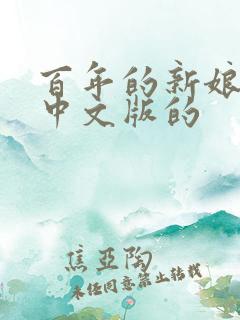 百年的新娘
中文版的
焦亚陶
未经同意禁止转载